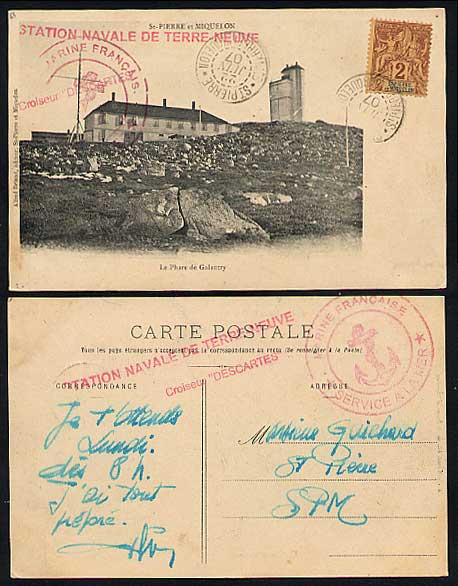 St-PIERRE et MIQUELON
STATION NAVALE DE TERRE-NEUVE
MARINE FRANÇAISE
Croiseur "DESCARTES"
ST-PIERRE
07
2
07
Le Phare de Galantry
CARTE POSTALE
Tous les pays étrangers n'acceptent pas la correspondance au recto (Se renseigner à la Poste)
STATION NAVALE DE TERRE-NEUVE
Croiseur "DESCARTES"
MARINE FRANÇAISE
SERVICE A LA MER
CORRESPONDANCE
ADRESSE
Je t'attends
Lundi.
dès 8 h.
J'ai tout
préparé.
Guichard
St Pierre
SPM